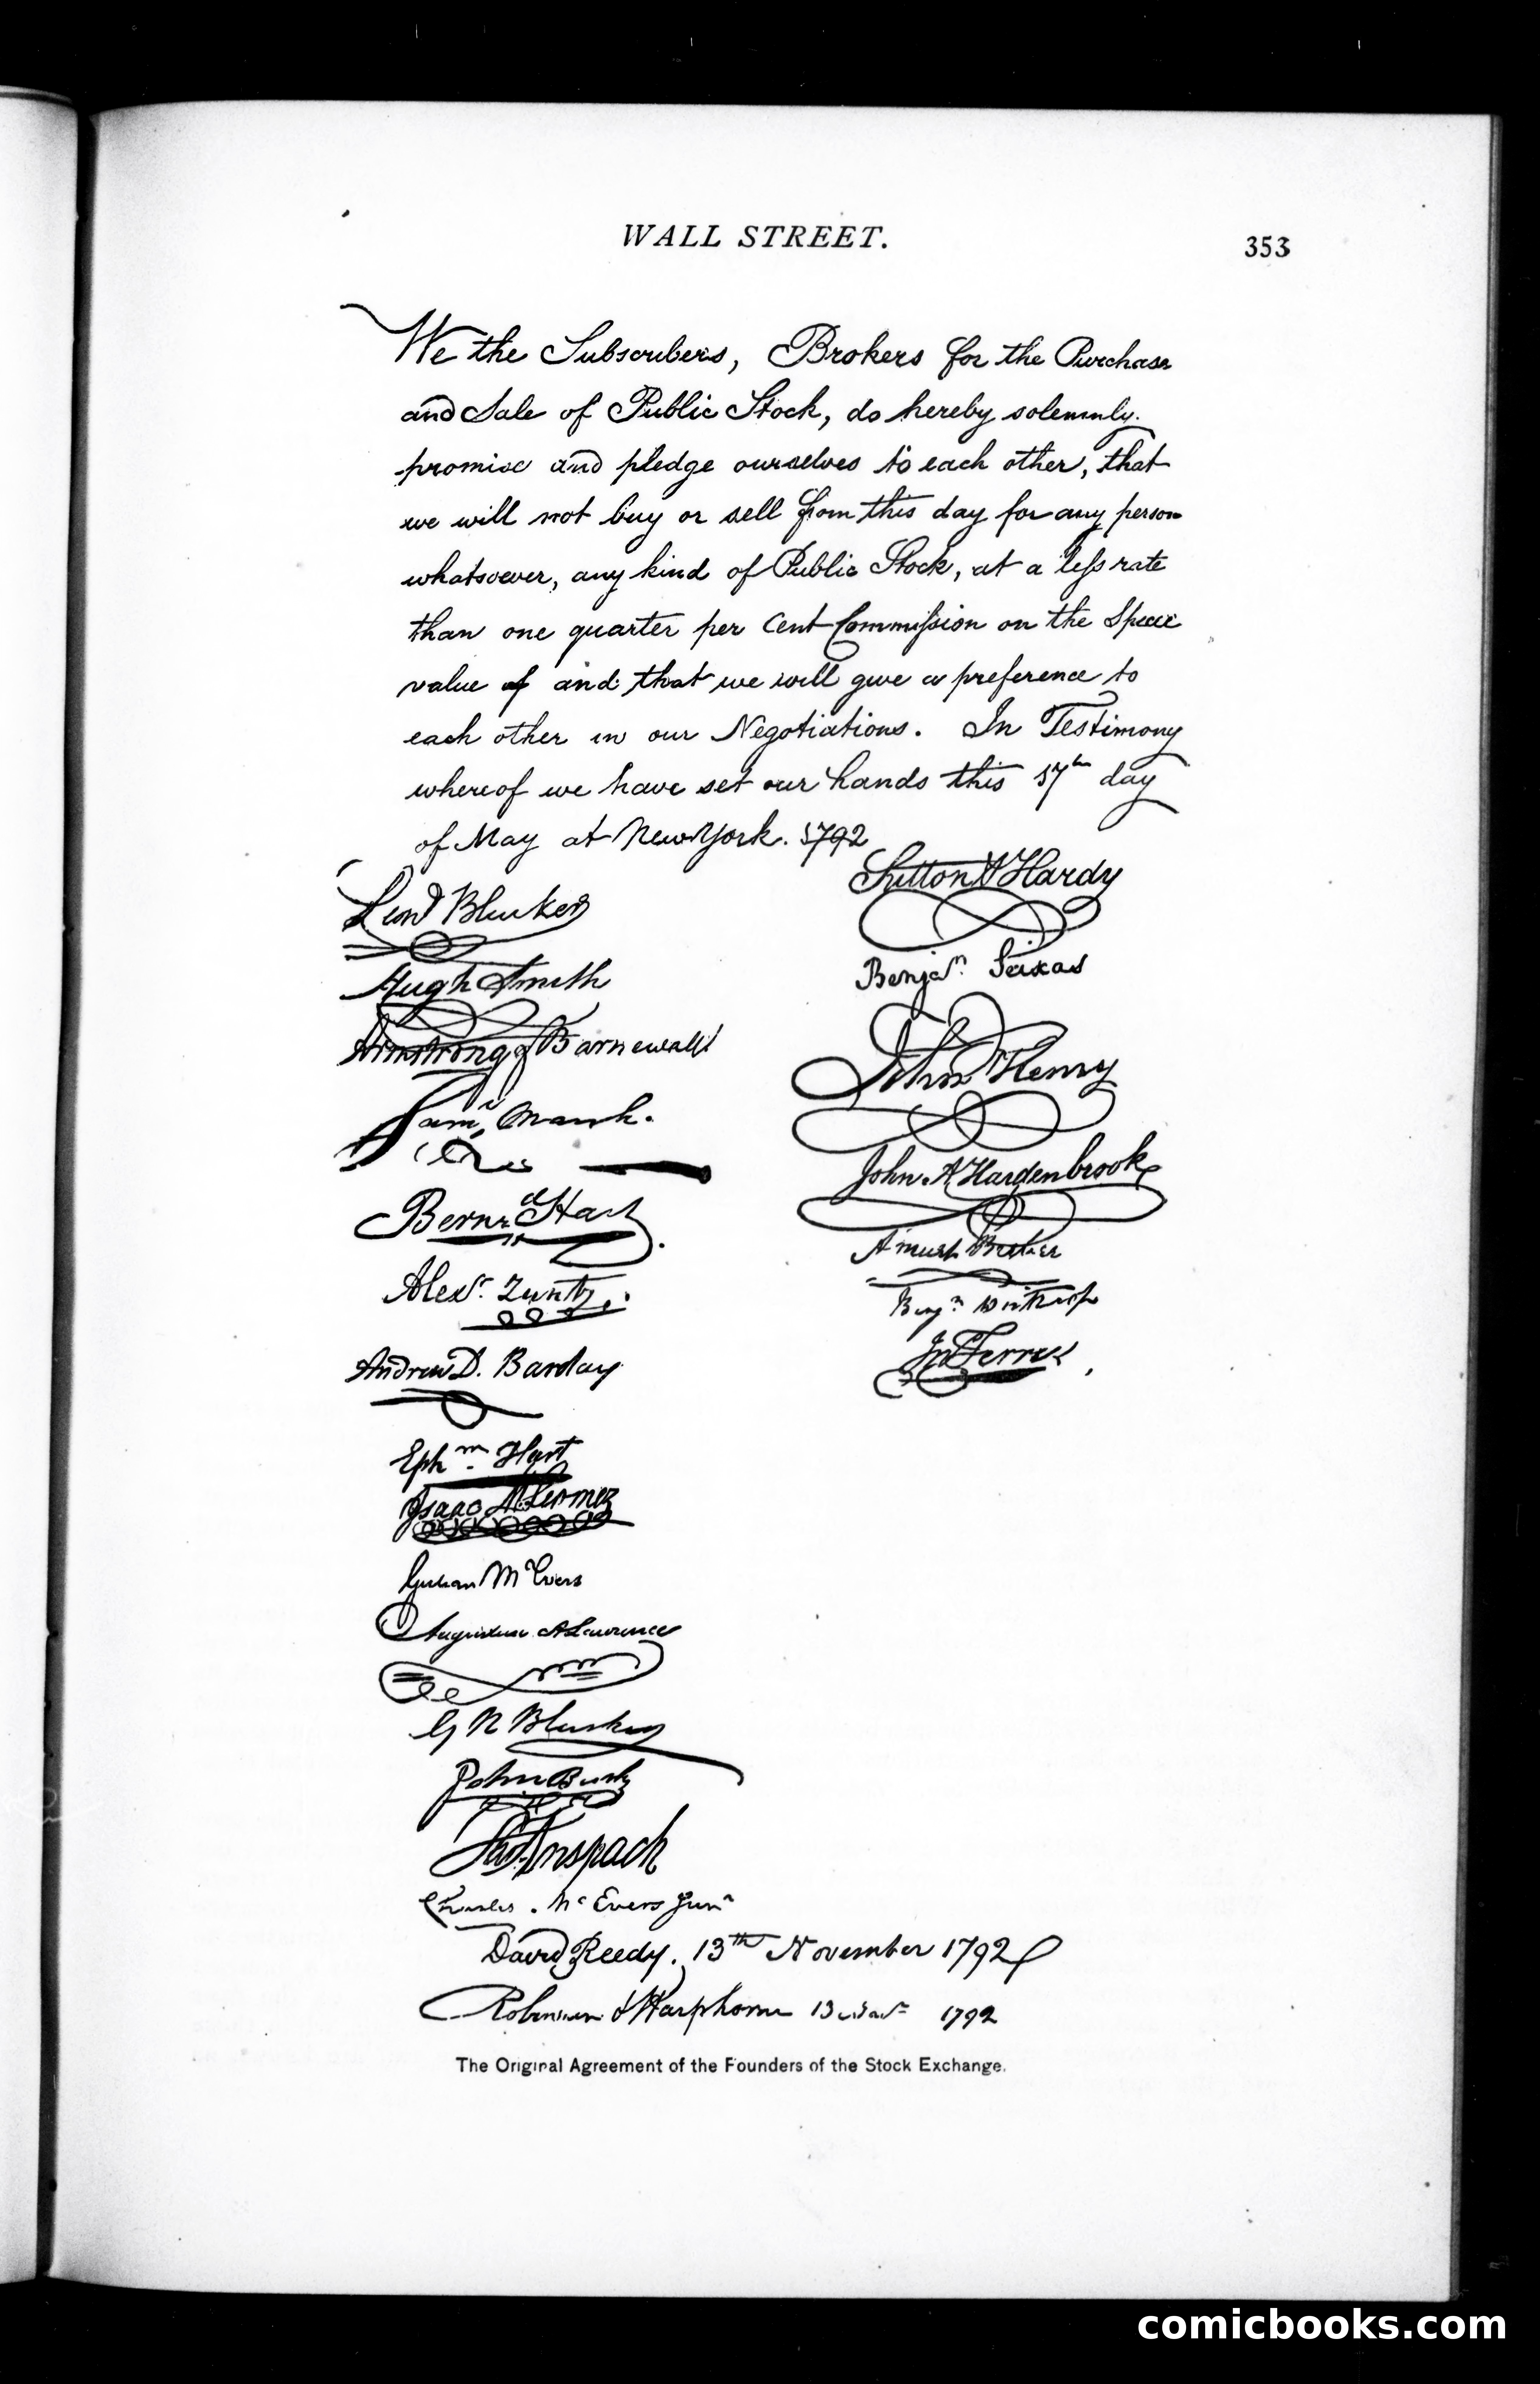 WALL STREET.
353
We the Subscribers, Brokers for the Purchase
and Sale of Public Stock, do hereby solemnly
promise and pledge ourselves to each other, that
we will not buy or sell from this day for any person
whatsoever, any kind of Public Stock, at a less rate
than one quarter per Cent Commission on the Specie
value of and that we will give a preference to
each other in our Negotiations. In Testimony
whereof we have set our hands this 17th day
of May at New York. 1792
Leod Bleecker
Hugh Smith
Armstrong & Barnewall
Saml Marsh.
Bernd Hart
Alexr. Zuntz
Andrew D. Barclay
Ephm. Hart
Isaac M. Gomez
Gulian McEvers
Augustine H Lawrence
G N Bleecker
John Bush
Anspach
Charles McEvers Junr
David Reedy. 13th November 1792
Robinson & Hartshorne 13 1792
Sutton & Hardy
Benjn. Seixas
John Henry
John A Hardenbrook
Benjn Winthrop
Jn Ferrers
The Original Agreement of the Founders of the Stock Exchange.
comicbooks.com